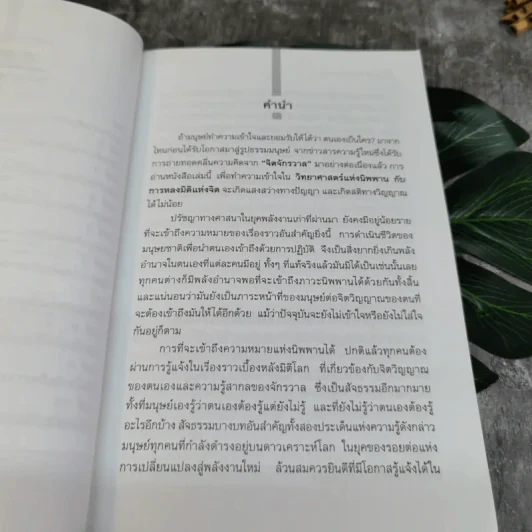 คำนำ
ถ้ามนุษย์ทำความเข้าใจและยอมรับให้ได้ว่า ตนเองเป็นใคร? มาจาก
ไหนก่อนได้รับโอกาสมาสู่รูปธรรมมนุษย์ จากข่าวสารความรู้ใหม่ซึ่งได้รับ
การถ่ายทอดคลื่นความคิดจาก "จิตจักรวาล" มาอย่างต่อเนื่องแล้ว การ
อ่านหนังสือเล่มนี้ เพื่อทำความเข้าใจใน วิทยาศาสตร์แห่งนิพพาน กับ
การหลงมิติแห่งจิต จะเกิดแสงสว่างทางปัญญา และเกิดสติทางวิญญาณ
ได้ไม่น้อย
ปรัชญาทางศาสนาในยุคพลังงานเก่าที่ผ่านมา ยังคงมีอยู่น้อยราย
ที่จะเข้าถึงความหมายของเรื่องราวอันสำคัญยิ่งนี้ การดำเนินชีวิตของ
มนุษยชาติเพื่อนำตนเองเข้าถึงด้วยการปฏิบัติ จึงเป็นสิ่งยากยิ่งเกินพลัง
อำนาจในตนเองที่แต่ละคนมีอยู่ ทั้งๆ ที่แท้จริงแล้วมันมิได้เป็นเช่นนั้นเลย
ทุกคนต่างก็มีพลังอำนาจพอที่จะเข้าถึงภาวะนิพพานได้ด้วยกันทั้งสิ้น
และแน่นอนว่ามันยังเป็นภาระหน้าที่ของมนุษย์ต่อจิตวิญญาณของตนที่
จะต้องเข้าถึงมันให้ได้อีกด้วย แม้ว่าปัจจุบันจะยังไม่เข้าใจหรือยังไม่ใส่ใจ
กันอยู่ก็ตาม
การที่จะเข้าถึงความหมายแห่งนิพพานได้ ปกติแล้วทุกคนต้อง
ผ่านการรู้แจ้งในเรื่องราวเบื้องหลังมิติโลก ที่เกี่ยวข้องกับจิตวิญญาณ
ของตนเองและความรู้สากลของจักรวาล ซึ่งเป็นสัจธรรมอีกมากมาย
ทั้งที่มนุษย์เองรู้ว่าตนเองต้องรู้แต่ยังไม่รู้ และที่ยังไม่รู้ว่าตนเองต้องรู้
อะไรอีกบ้าง สัจธรรมบางบทอันสำคัญทั้งสองประเด็นแห่งความรู้ดังกล่าว
มนุษย์ทุกคนที่กำลังดำรงอยู่บนดาวเคราะห์โลก ในยุคของรอยต่อแห่ง
การเปลี่ยนแปลงสู่พลังงานใหม่ ล้วนสมควรยินดีที่มีโอกาสรู้แจ้งได้ใน